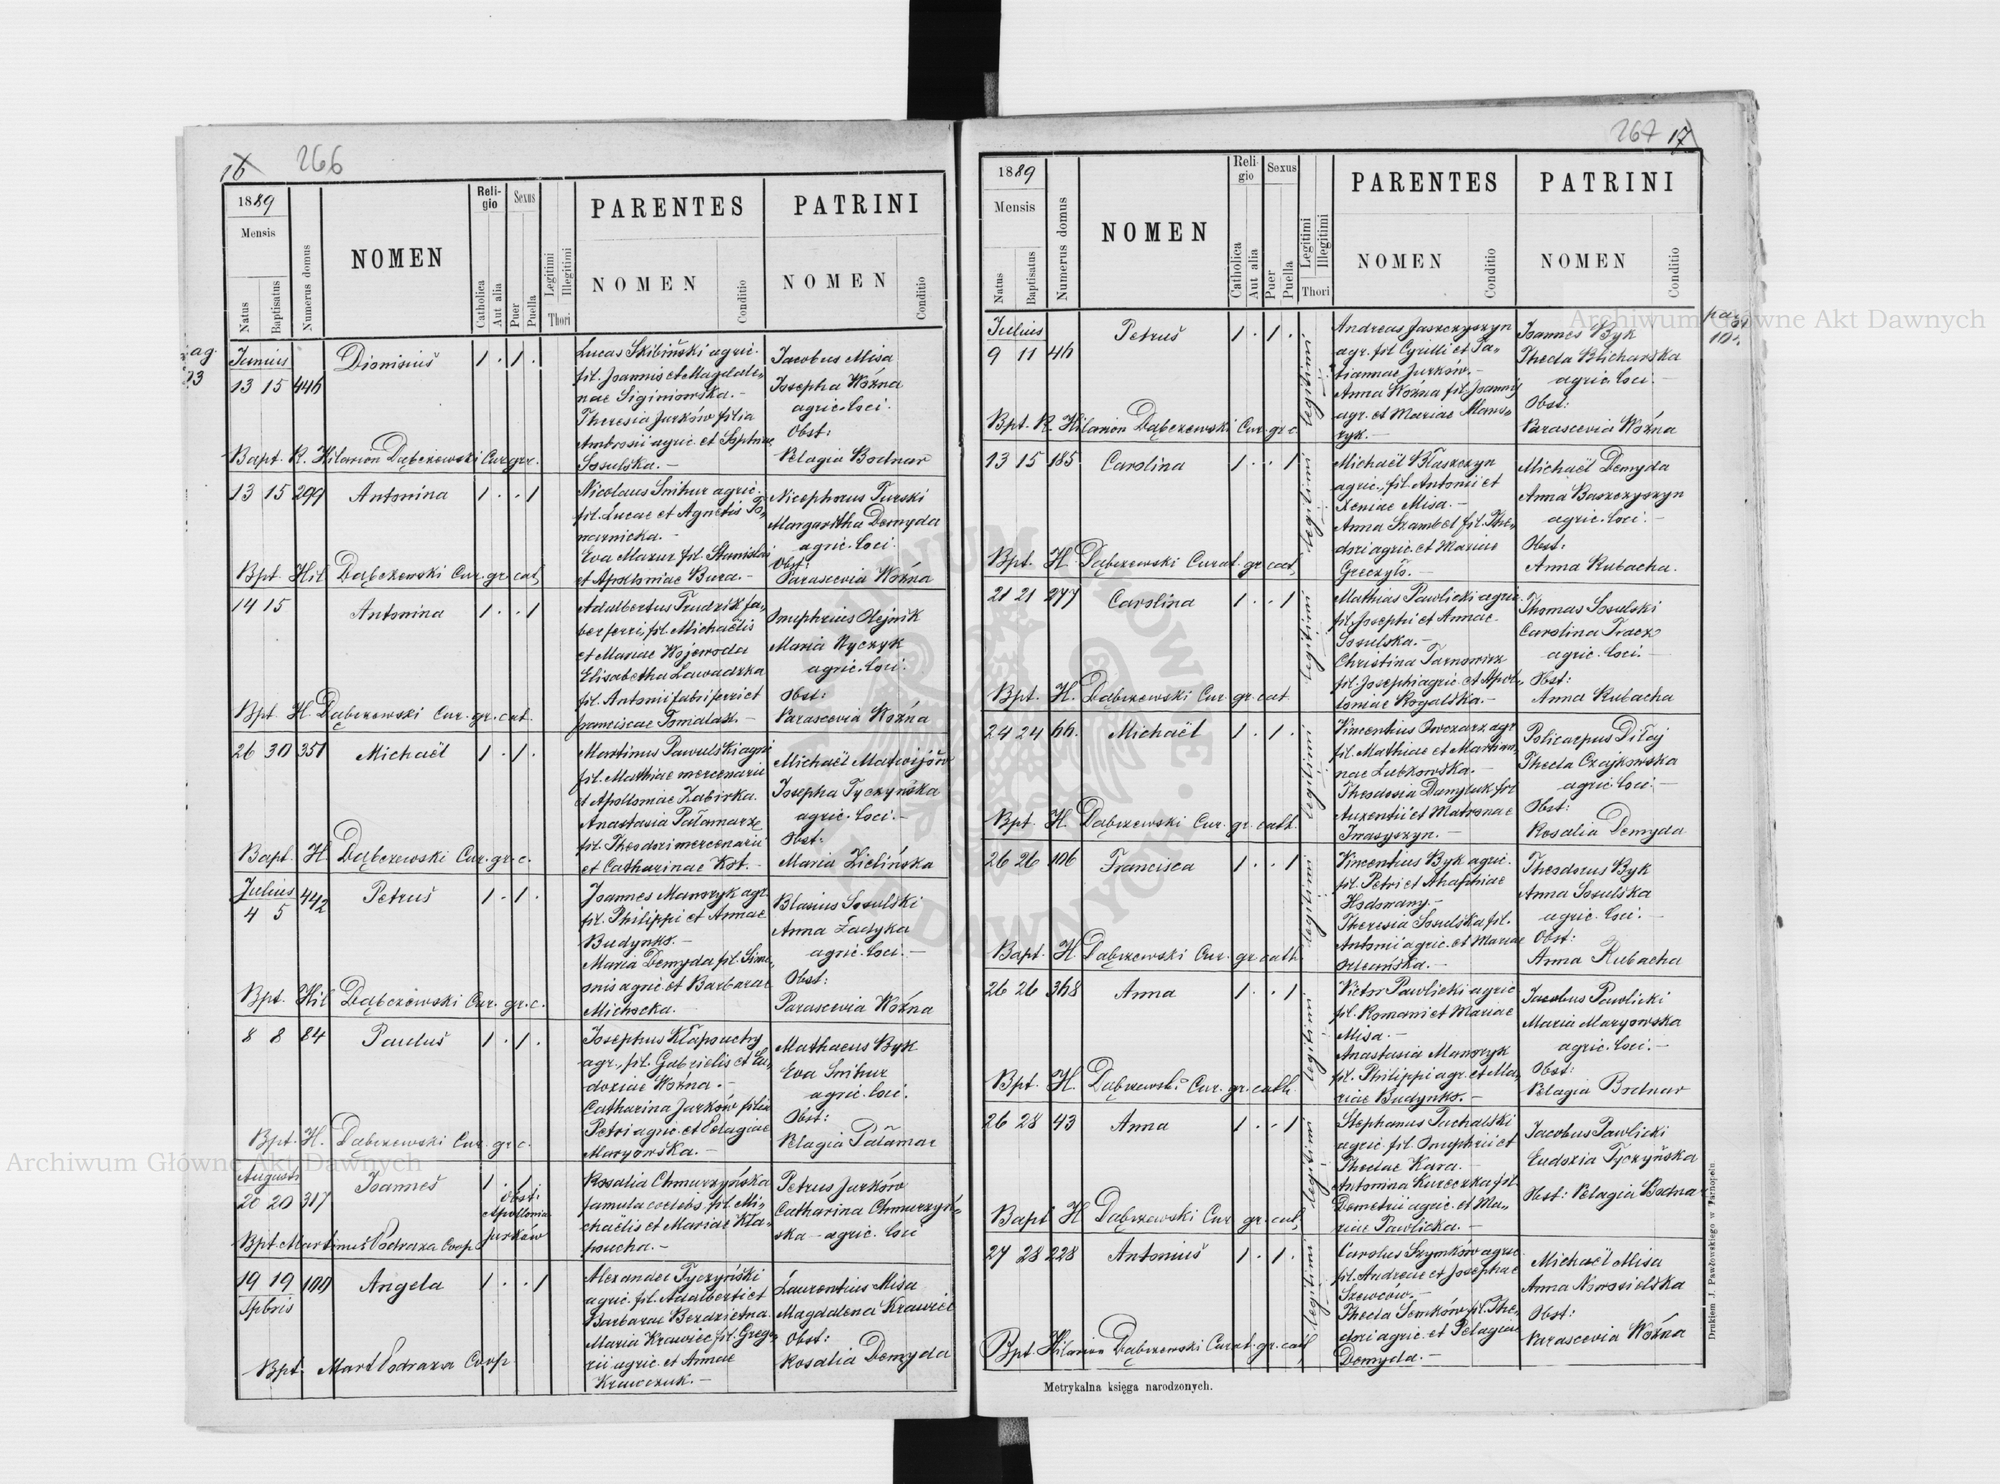 16 266
1889
Mensis
Natus
Baptisatus
Numerus domus
NOMEN
Religio
Catholica
Aut alia
Sexus
Puer
Puella
Legitimi
Illegitimi
Thori
PARENTES
NOMEN
Conditio
PATRINI
NOMEN
Conditio
Junius
13 15 446 Dionisius 1 . 1 .
Lucas Skibiński agric.
fil. Joannis et Magdale-
nae
Theresia Jurków filia
Ambrosii agric et
Sosulska. –
Jacobus Misa
Josepha Woźna
agric. loci.
Obst:
Pelagia Bodnar
Bapt. R. Hilarion Dąbczewski Cur. gr. c.
13 15 299 Antonina 1 . . 1
Nicolaus Snihur agric.
fil. Lucae et Agnetis To-
warnicka. –
Eva Mazur fil. Stanislai
et Apolloniae Bura. –
Nicephorus Turski
Margaritha Demyda
agric. loci.
Obst:
Parascevia Woźna
Bpt. Hil Dąbczewski Cur. gr. cat.
14 15 Antonina 1 . . 1
Adalbertus Trudzik fa-
ber ferri, fil. Michaëlis
et Mariae Wojewoda
Elisabetha Zawadzka
fil. Antonii fabri ferri et
Franciscae
Onuphrius Olejnik
Maria Wyczyk
agric. loci.
Obst:
Parascevia Woźna
Bpt H. Dąbczewski Cur. gr. cat.
26 30 351 Michaël 1 . 1 .
Martinus Pawulski agric
fil. Mathiae mercenarii
et Apolloniae Zabirka.
Anastasia Pałamarz
fil. Theodori mercenarii
et Catharinae Kot. –
Michaël Matwijów
Josepha Tyczyńska
agric. loci. –
Obst:
Maria Zielińska
Bapt. H. Dąbczewski Cur. gr. c.
Julius
4 5 442 Petrus 1 . 1 .
Joannes Mamryk agr.
fil. Philippi et Annae
Budynko. –
Maria Demyda fil. Sime-
onis agric et Barbarae
Michocka. –
Blasius Sosulski
Anna Zadyka
agric. loci. –
Obst:
Parascevia Woźna
Bpt. Hil Dąbczewski Cur. gr. c.
8 8 84 Paulus 1 . 1 .
Josephus Kłapouchy
agr., fil. Gabrielis et Eu-
doxiae Woźna. –
Catharina Jurków filia
Petri agric et Pelagiae
Maryowska. –
Mathaeus Byk
Eva Snihur
agric. loci.
Obst:
Pelagia Pałamar
Bpt. H. Dąbczewski Cur. gr. c.
Augusti
20 20 317 Joannes 1 . 1 .
Obst:
Apollonia
Jurków
Rosalia Chmurzyńska
famula coelebs, fil. Mi-
chaëlis et Mariae Kła-
poucha. –
Petrus Jurków
Catharina Chmurzyń-
ska – agric. loci
Bpt. Martinus Podraza Coop.
19 19 100 Angela 1 . . 1
Alexander Tyczyński
agric. fil. Adalberti et
Barbarae Bezdzietna
Maria Krawiec, fil. Grego-
rii agric. et Annae
Krawczuk. –
Laurentius Misa
Magdalena Krawiec
Obst:
Rosalia Demyda
Bpt. Mart Podraza Coop
267 17
1889
Mensis
Natus
Baptisatus
Numerus domus
NOMEN
Religio
Catholica
Aut alia
Sexus
Puer
Puella
Legitimi
Illegitimi
Thori
PARENTES
NOMEN
Conditio
PATRINI
NOMEN
Conditio
Julius
9 11 46 Petrus 1 . 1 . legitimi
Andreas Jaszczyszyn
agr. fil Cyrilli et Ta-
tiannae Jurków. –
Anna Woźna fil. Joannis
agr. et Mariae Mam-
ryk. –
Joannes Byk
Thecla Blicharska
agric. loci. –
Obst:
Parascevia Woźna
Bpt. R. Hilarion Dąbczewski Cur. gr. c.
13 15 185 Carolina 1 . . 1 legitimi
Michaël Błaszczyn
agric., fil. Antonii et
Xeniae Misa. –
Anna Szambel fil. Theo-
dori agric. et Mariae
Greczyło. –
Michaël Demyda
Anna Baszczyszyn
agric. loci. –
Obst:
Anna Rubacha.
Bpt. H. Dąbczewski Curat. gr. cat.
21 21 277 Carolina 1 . . 1 legitimi
Mathias Pawlicki agric.
fil. Josephi et Annae
Sosulska. –
Christina Tarnowicz
fil. Josephi agric. et Apol-
loniae Rogalska. –
Thomas Sosulski
Carolina Tracz
agric. loci. –
Obst:
Anna Rubacha
Bpt. H. Dąbczewski Cur. gr. cat.
24 24 66. Michaël 1 . 1 . legitimi
Vincentius Owczarz agr
fil. Mathiae et Marian-
nae Lubkowska. –
Theodosia Danyluk fil
Auxentii et Matronae
Iwasyszyn. –
Policarpus Diłaj
Thecla Czajkowska
agric. loci. –
Obst:
Rosalia Demyda
Bpt. H. Dąbczewski Cur. gr. cath.
26 26 106 Francisca 1 . . 1 legitimi
Vincentius Byk agric.
fil. Petri et Ahaphiae
Hodowany. –
Theresia Sosulska fil.
Antonii agric. et Mariae
Orleańska. –
Theodorus Byk
Anna Sosulska
agric. loci. –
Obst:
Anna Rubacha
Bapt. H. Dąbczewski Cur. gr. cath.
26 26 368 Anna 1 . . 1 legitimi
Victor Pawlicki agric
fil. Romani et Mariae
Misa. –
Anastasia Mamryk
fil. Philippi agr. et Ma-
riae Budynko. –
Jacobus Pawlicki
Maria Maryowska
agric. loci. –
Obst:
Pelagia Bodnar
Bpt. H. Dąbczewski Cur. gr. cath.
26 28 43 Anna 1 . . 1 legitimi
Stephanus Puchalski
agric. fil. Onuphrii et
Theclae Kara. –
Antonina Kureczka fil.
Demetrii agric. et Ma-
riae Pawlicka. –
Jacobus Pawlicki
Eudoxia Tyczyńska
Obst: Pelagia Bodnar
Bapt H. Dąbczewski Cur. gr. cat.
27 28 228 Antonius 1 . 1 . legitimi
Carolus Szymków agric
fil. Andreae et Josephae
Szewców. –
Thecla Semków fil. Theo-
dori agric. et Pelagiae
Demyda. –
Michaël Misa
Anna Nowosielska
Obst:
Parascevia Woźna
Bpt. Hilarion Dąbczewski Curat. gr. cat.
Metrykalna księga narodzonych.
Drukiem J. Pawłowskiego w Tarnopolu
Archiwum Główne Akt Dawnych
Archiwum Główne Akt Dawnych